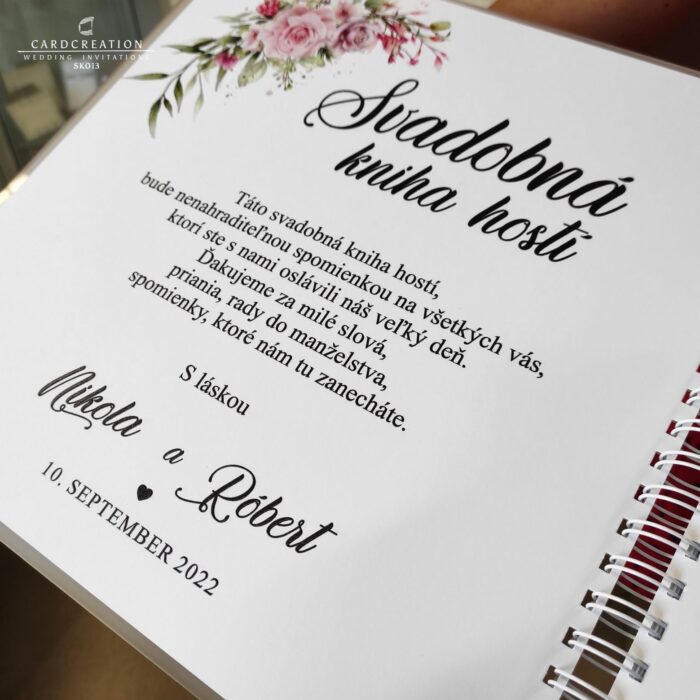 CARDCREATION
WEDDING INVITATIONS
SK013
Svadobná
kniha hostí
Táto svadobná kniha hostí,
bude nenahraditeľnou spomienkou na všetkých vás,
ktorí ste s nami oslávili náš veľký deň.
Ďakujeme za milé slová,
priania, rady do manželstva,
spomienky, ktoré nám tu zanecháte.
S láskou
Nikola a Róbert
10. SEPTEMBER 2022